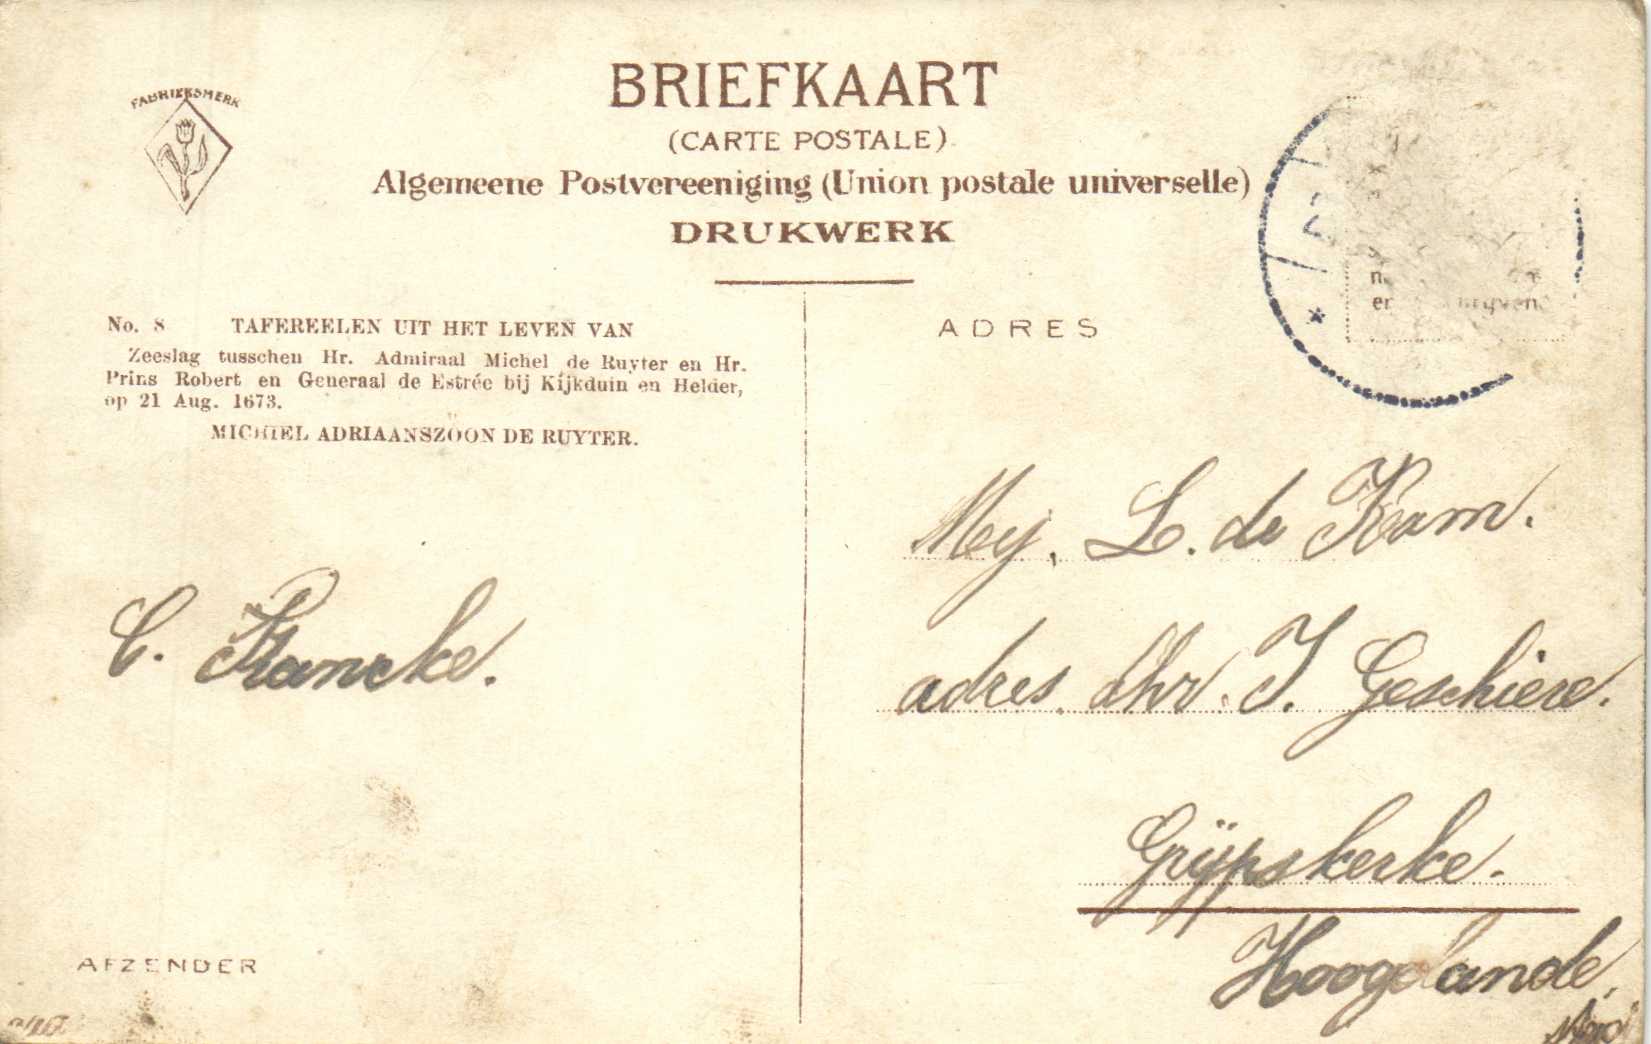 FABRIEKSMERK
BRIEFKAART
(CARTE POSTALE)
Algemeene Postvereeniging (Union postale universelle)
DRUKWERK
No. 8 TAFEREELEN UIT HET LEVEN VAN
Zeeslag tusschen Hr. Admiraal Michel de Ruyter en Hr.
Prins Robert en Generaal de Estrée bij Kijkduin en Helder,
op 21 Aug. 1673.
MICHIEL ADRIAANSZOON DE RUYTER.
C. Francke.
AFZENDER
ADRES
Mej. L. de Kam.
adres dhr. J. Geschiere.
Grijpskerke.
Hoogelande,